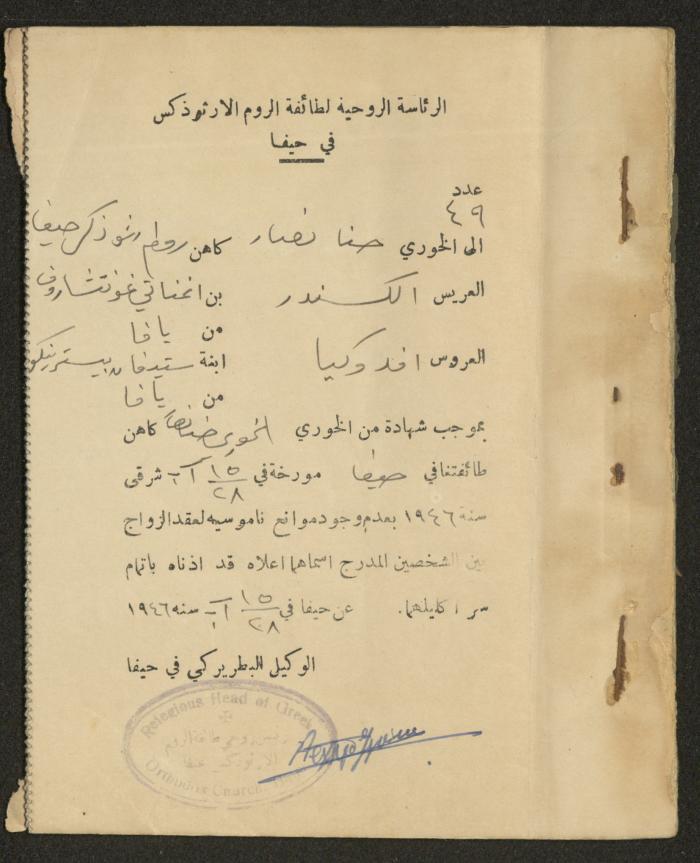 الرئاسة الروحية لطائفة الروم الارثوذكس
في حيفا
عدد
٤٩
الى الخوري حنا نصار كاهن روم ارثوذكس حيفا
العريس الكسندر بن اغناتي غونتشاروف
من يافا
العروس افدوكيا ابنة ستيفان
من يافا
بموجب شهادة من الخوري الخوري حنا نصار كاهن
طائفتنا في حيفا مورخة في ١٥/٢٨ آب شرقى
سنة ١٩٤٦ بعدم وجود موانع ناموسيه لعقد الزواج
بين الشخصين المدرج اسماهما اعلاه قد اذناه باتمام
سر اكليلهما. عن حيفا في ١٥/٢٨ آب سنه ١٩٤٦
الوكيل البطريركي في حيفا
Relegious Head of Greek
Orthodox Church,